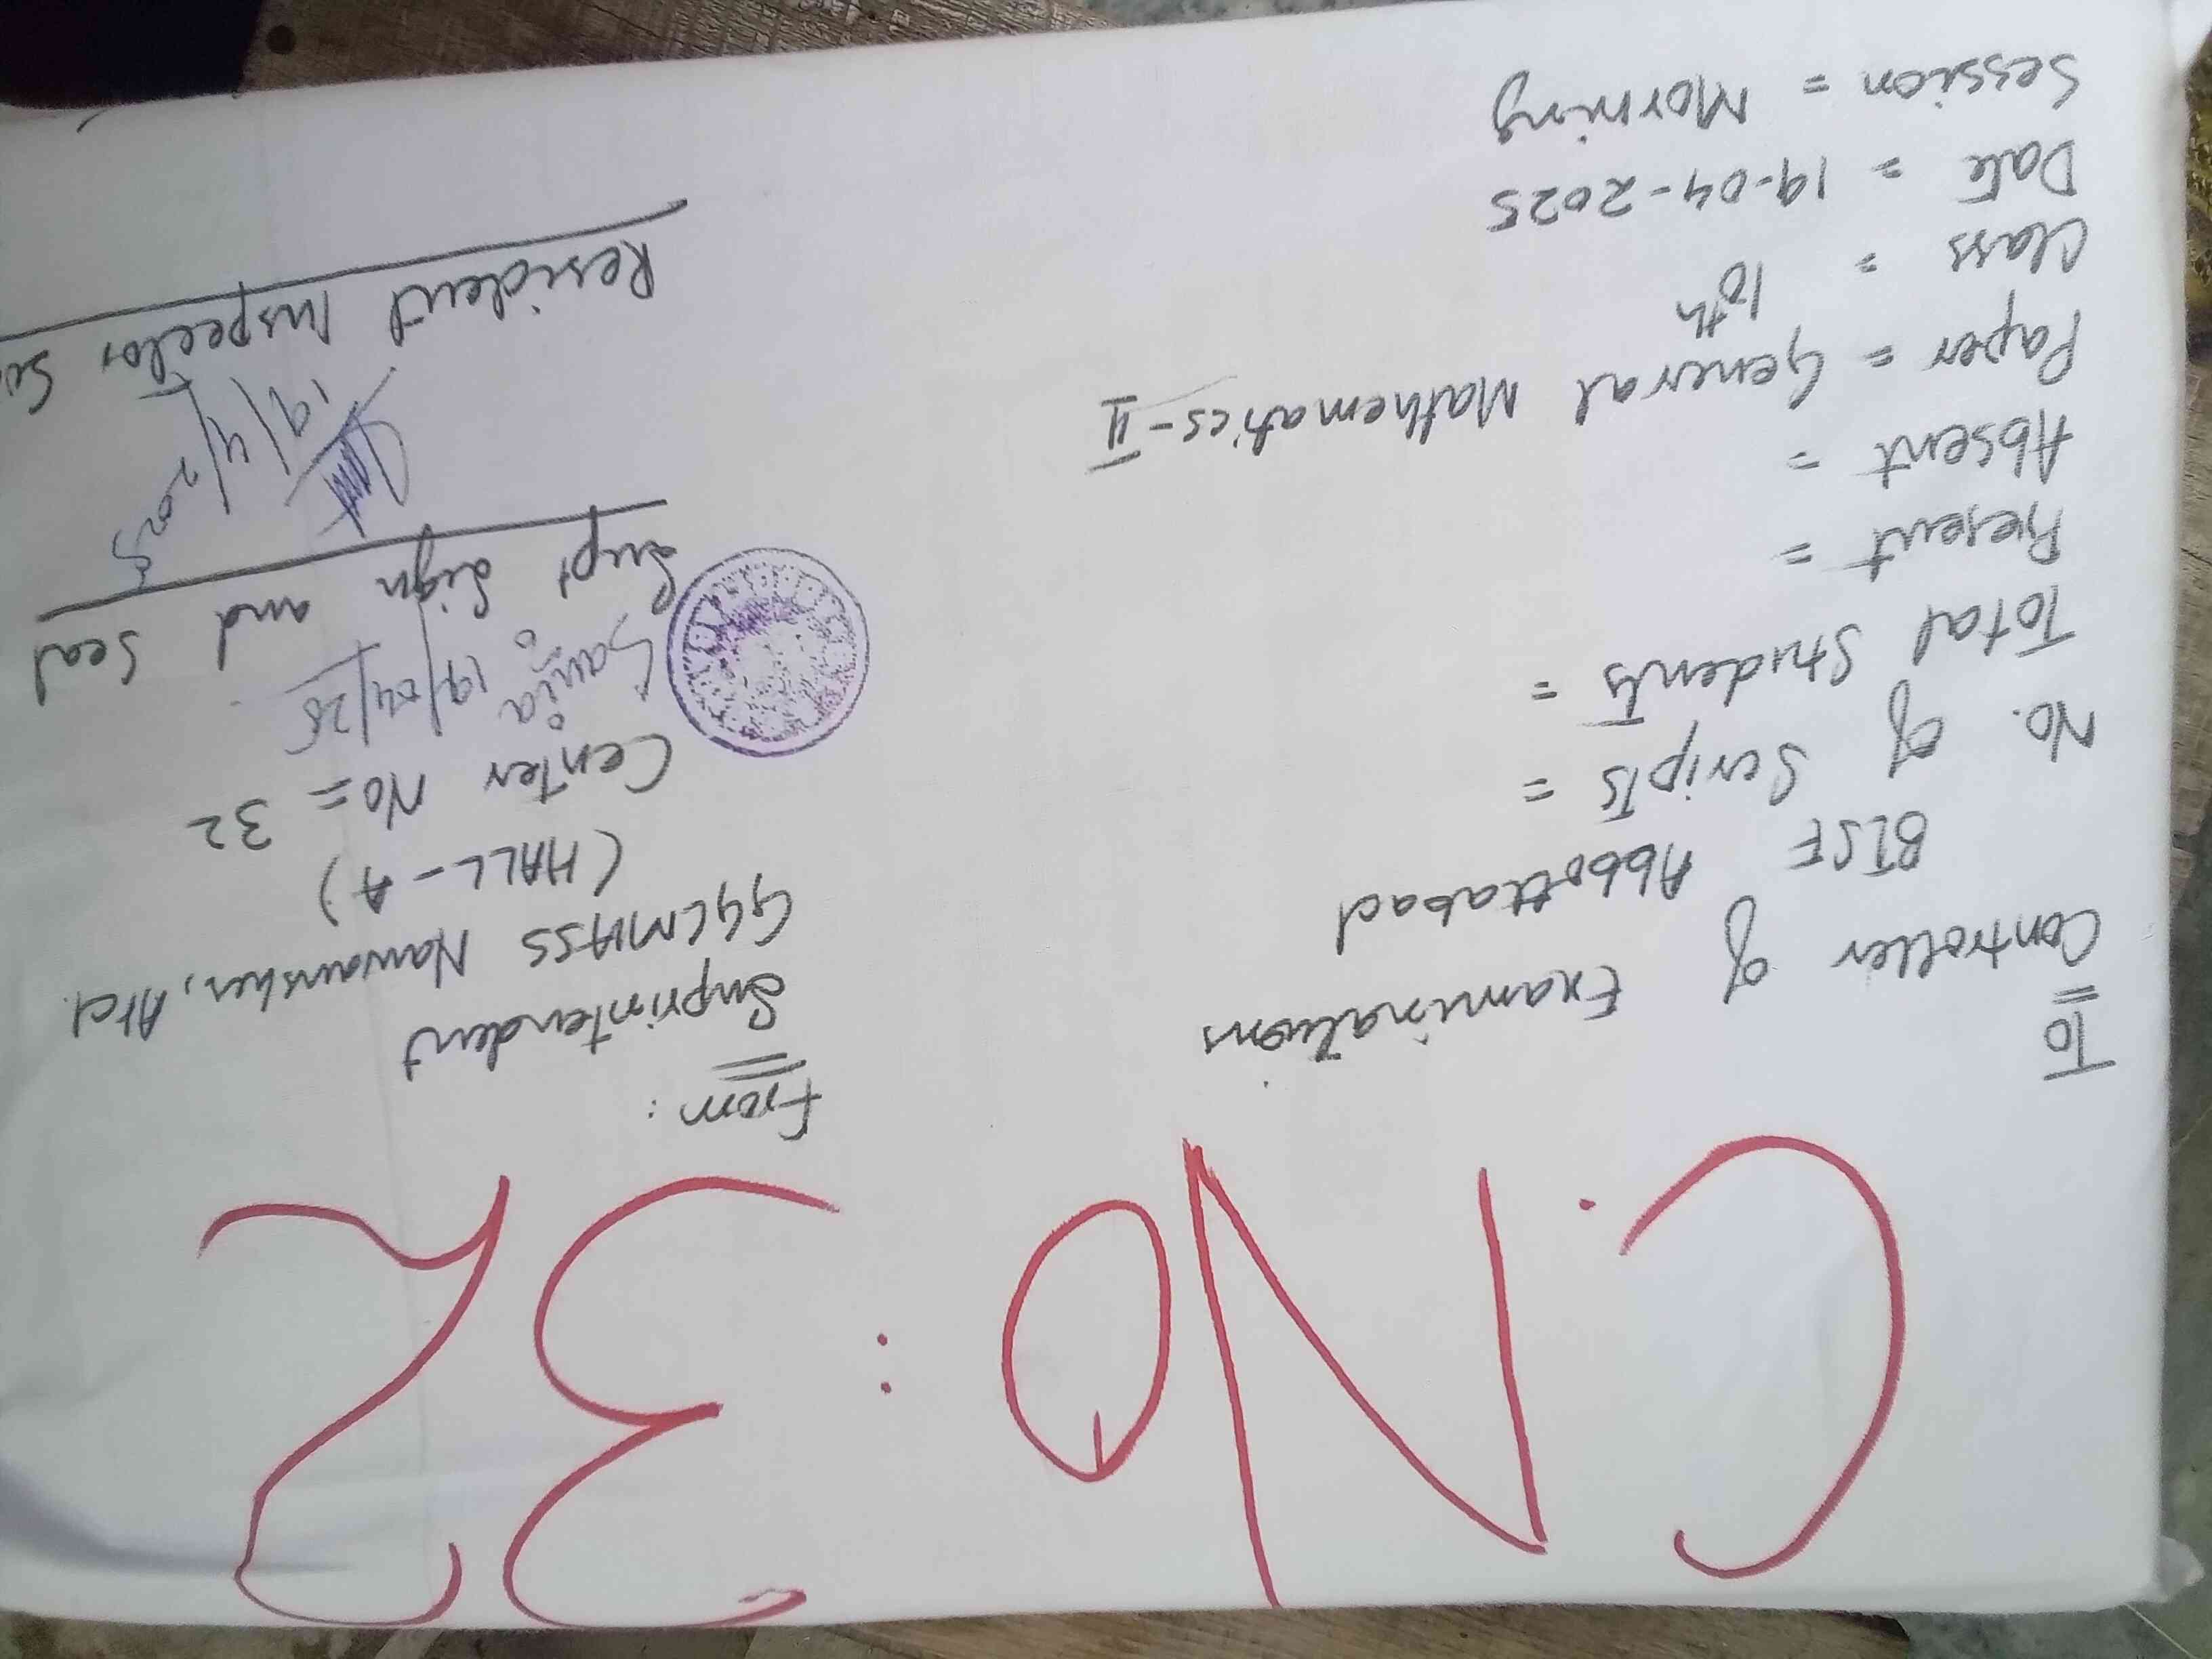 C. No: 32
To
Controller of Examinations
BISE Abbottabad
No. of Scripts =
Total Students =
Present =
Absent =
Paper = General Mathematics-II
Class = 10th
Date = 19-04-2025
Session = Morning
From:
Suprintendent
GGCMHSS Nawansher, Atd.
(HALL-A)
Center No = 32
Sania 19/04/25
Supt Sign and Seal
19/4/2025
Resident Inspector